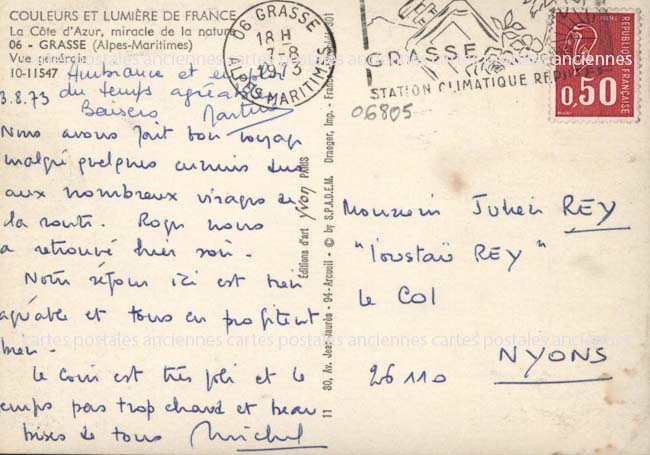 COULEURS ET LUMIÈRE DE FRANCE
La Côte d'Azur, miracle de la nature
06 - GRASSE (Alpes-Maritimes)
Vue générale
10-11547
Ambiance et
du temps agréable
3.8.73 Baisers Martine
Nous avons fait bon voyage
malgré quelques ennuis dus
aux nombreux virages de
la route. Roger nous
a retrouvé hier soir.
Notre séjour ici est très
agréable et tous en profitent
bien.
Le coin est très joli et le
temps pas trop chaud et beau
bises de tous Michel
11 30, Av. Jean-Jaurès - 94-Arcueil - © by S.P.A.D.E.M. Draeger, Imp. - 
Éditions d'art yvon PARIS
06 GRASSE
18 H
7-8
1973
ALPES MARITIMES
GRASSE
STATION CLIMATIQUE
06805
RÉPUBLIQUE FRANÇAISE
POSTES
0,50
Monsieur Julien REY
"l'oustaù REY"
le COL
NYONS
26110
cartes postales anciennes cartes postales anciennes cartes postales anciennes